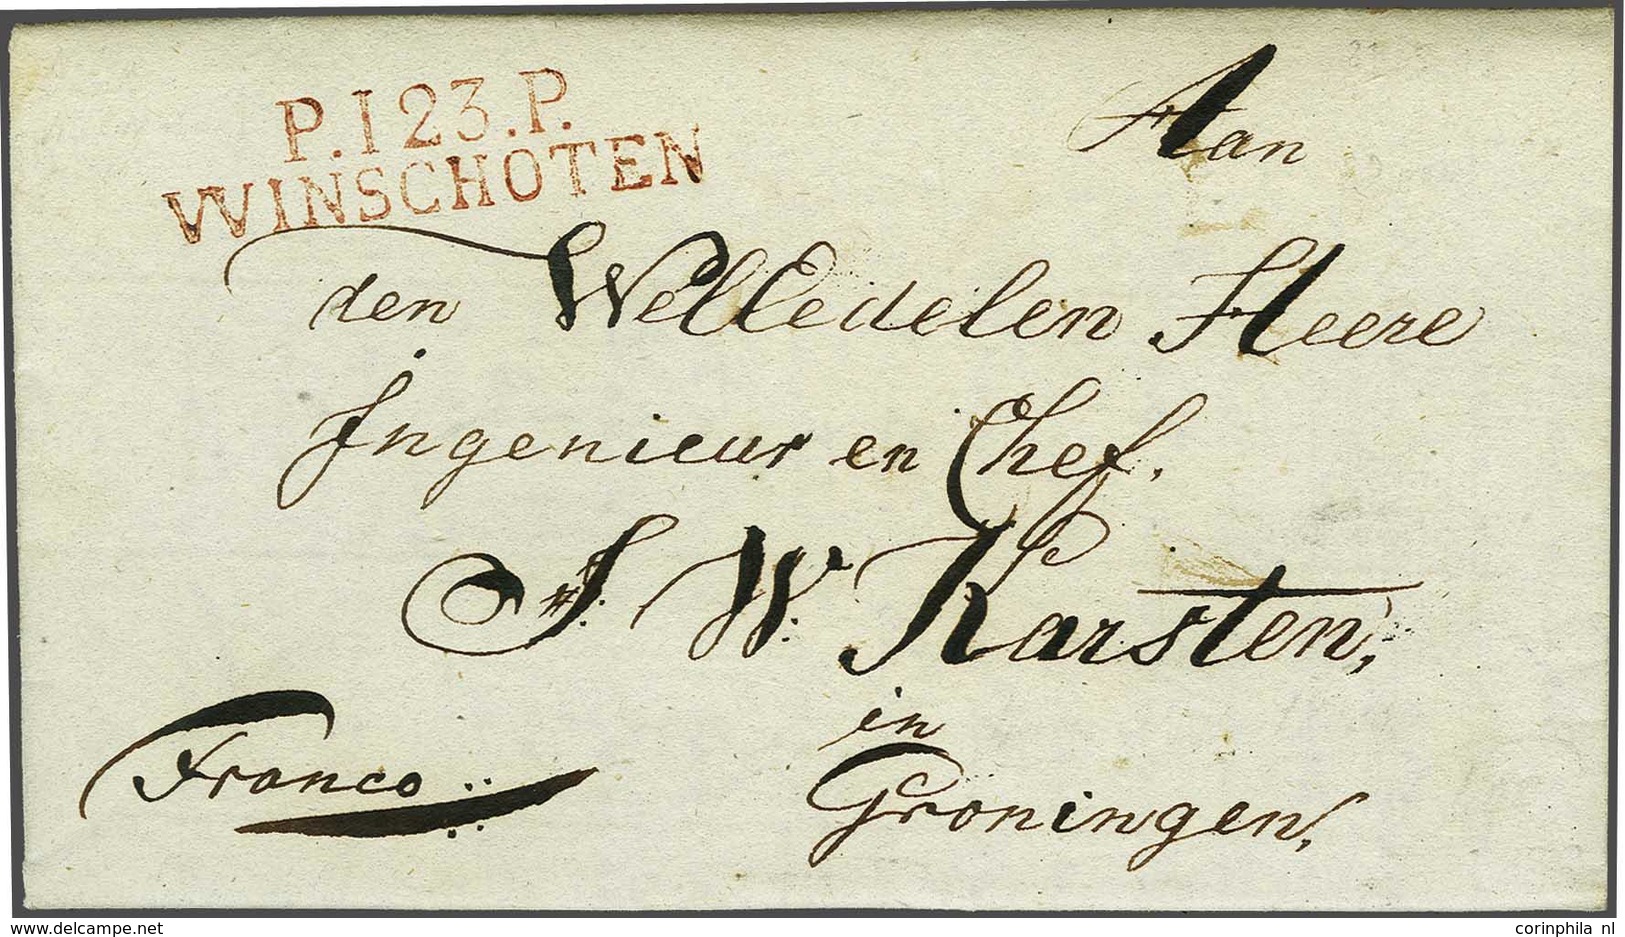 P.123.P.
WINSCHOTEN
Aan
den Welledelen Heere
Ingenieur en Chef.
J. W. Karsten,
in
Groningen,
Franco
www.delcampe.net
corinphila nl